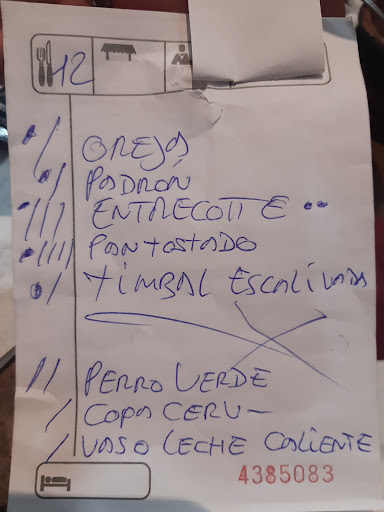 12
/ OREJA
/ PADRÓN
/// ENTRECOTTE ..
//// PAN TOSTADO
/ TIMBAL ESCALIVADA
// PERRO VERDE
/ COPA CERV-
/ VASO LECHE CALIENTE
4385083